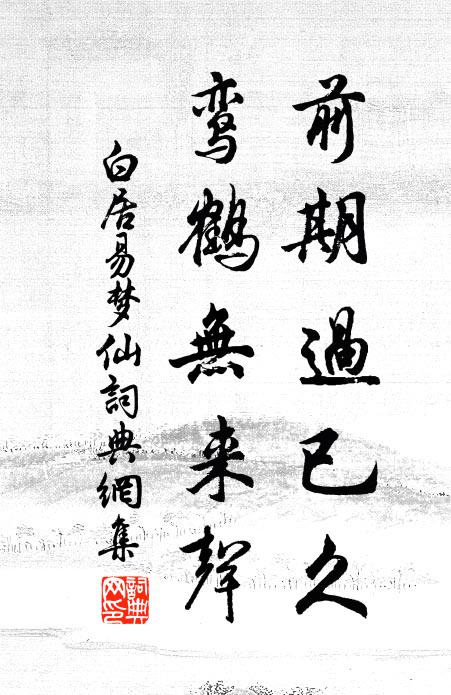 前期過已久
鸾鶴無来聲
白居易梦仙詞典網集
詞典网印